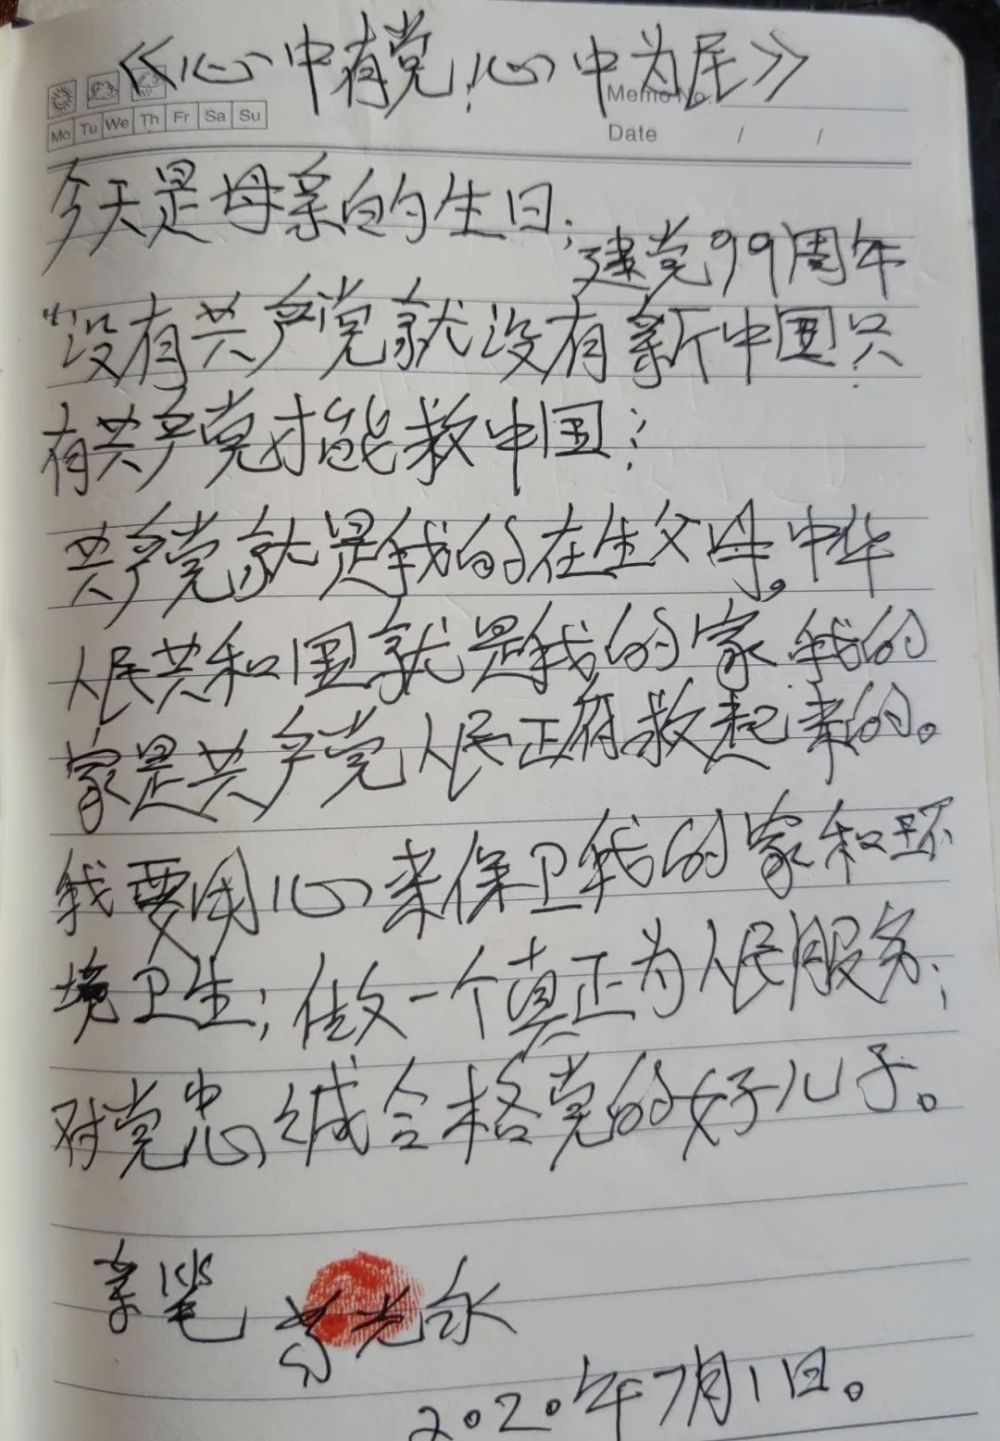 《心中有党,心中为民》
Memo No.
Mo Tu We Th Fr Sa Su
Date / /
今天是母亲的生日;
建党99周年
"没有共产党就没有新中国只
有共产党才能救中国;
共产党就是我的在生父母。中华
人民共和国就是我的家,我的
家是共产党人民正府救起来的。
我要用心来保卫我的家和环
境卫生;做一个真正为人民服务;
对党忠诚合格党的好儿子。
亲笔
光永
2020年7月1日。